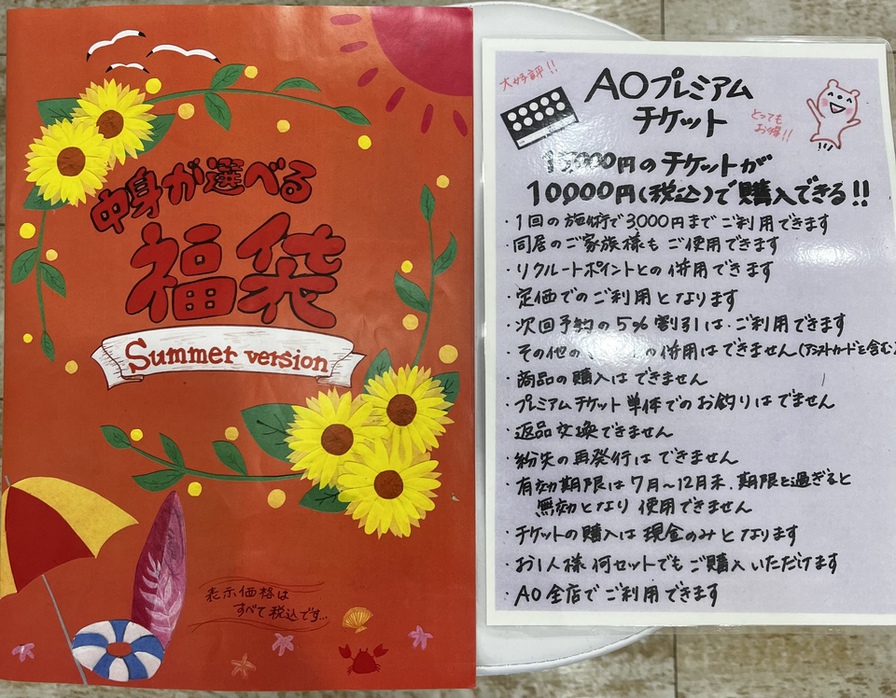 中身が選べる
福袋
Summer version
表示価格は
すべて税込です…
大好評!!
AOプレミアム
チケット
とっても
お得!!
15000円のチケットが
10000円(税込)で購入できる!!
・1回の施術で3000円までご利用できます
・同居のご家族様もご使用できます
・リクルートポイントとの併用できます
・定価でのご利用となります
・次回予約の5%割引は、ご利用できます
・その他の の併用はできません(アシストカードを含む)
・商品の購入はできません
・プレミアムチケット単体でのお釣りはでません
・返品交換できません
・紛失の再発行はできません
・有効期限は7月〜12月末、期限を過ぎると
無効となり使用できません
・チケットの購入は現金のみとなります
・お1人様何セットでもご購入いただけます
・AO全店でご利用できます